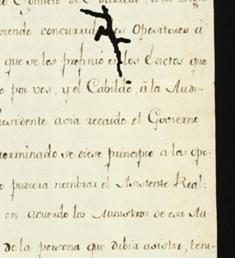 viendo concurrido los Opositores a
que se les prefinio en los Edictos que
o por vos, y el Cabildo, à la Audi
residente avia recaido el Govierno
terminado se diese principio a las opo
o pudiera nombrar el Asistente Real:
en acuerdo los Ministros de esa Au
de la persona que debia asistir, teni